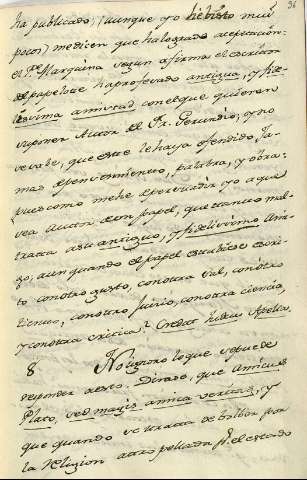 36
ha publicado, (aunque yo he visto mui
pocos) me dicen que ha logrado aceptacion:
el Pe. Marquina segun afirma el escritor
el papelote ha profesado antigua, y fide
lisima amistad con el que quieren
suponer Autor de Fr. Gerundio; y no
se sabe, que este le haya ofendido ja-
mas de pensamiento, palabra, y obra.
pues como me he de persuadir yo a que
sea Autor de un papel, que tan mal
trata a su antiguo, y fidelisimo Ami-
go, aun quando el papel estubiese escri-
to con otro gusto, con otra sal, con otro
tiento, con otro juicio, con otra ciencia,
y con otra critica? Credat Judæus Apella.
8 No ignoro lo que se puede
responder a esto. Dirase, que Amicus
Plato, sed magis amica veritas, y
que quando se trata de bolber por
la Religion atropellada, por el estado